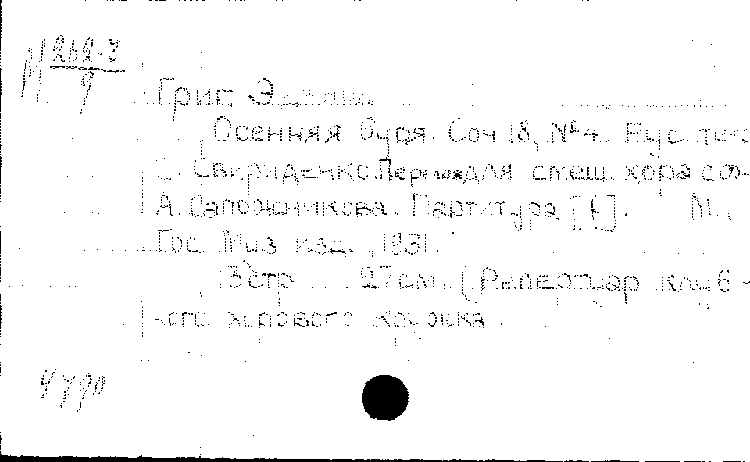 М 262-7
9
Григ, Эдвард.
Осенняя буря. Соч 18, № 4. Рус. текс
С. Свириденко. Перелож для смеш. хора с ф-
А. Сапожникова. Партитура [ф]. М.,
Гос. Муз. изд., 1931.
13 стр 27 см. (Репертуар клуб-
ного хорового кружка.
4790